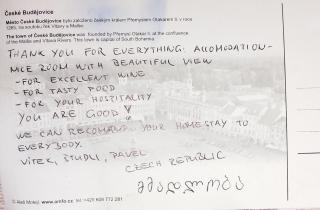 České Budějovice
Město České Budějovice bylo založeno českým králem Přemyslem Otakarem II. v roce
1265, na soutoku řek Vltavy a Malše.
The town of České Budějovice was founded by Přemysl Otakar II. at the confluence
of the Malše and Vltava Rivers. This town is capital of South Bohemia.
THANK YOU FOR EVERYTHING: ACCOMODATION -
NICE ROOM WITH BEAUTIFUL VIEW
- FOR EXCELLENT WINE
- FOR TASTY FOOD
- FOR YOUR HOSPITALITY
YOU ARE GOOD!
WE CAN RECOMEND YOUR HOMESTAY TO
EVERYBODY.
VÍTEK, ŠTUDLI, PAVEL
CZECH REPUBLIC
მადლობა
© Aleš Motejl, www.amfo.cz tel. +420 608 772 281